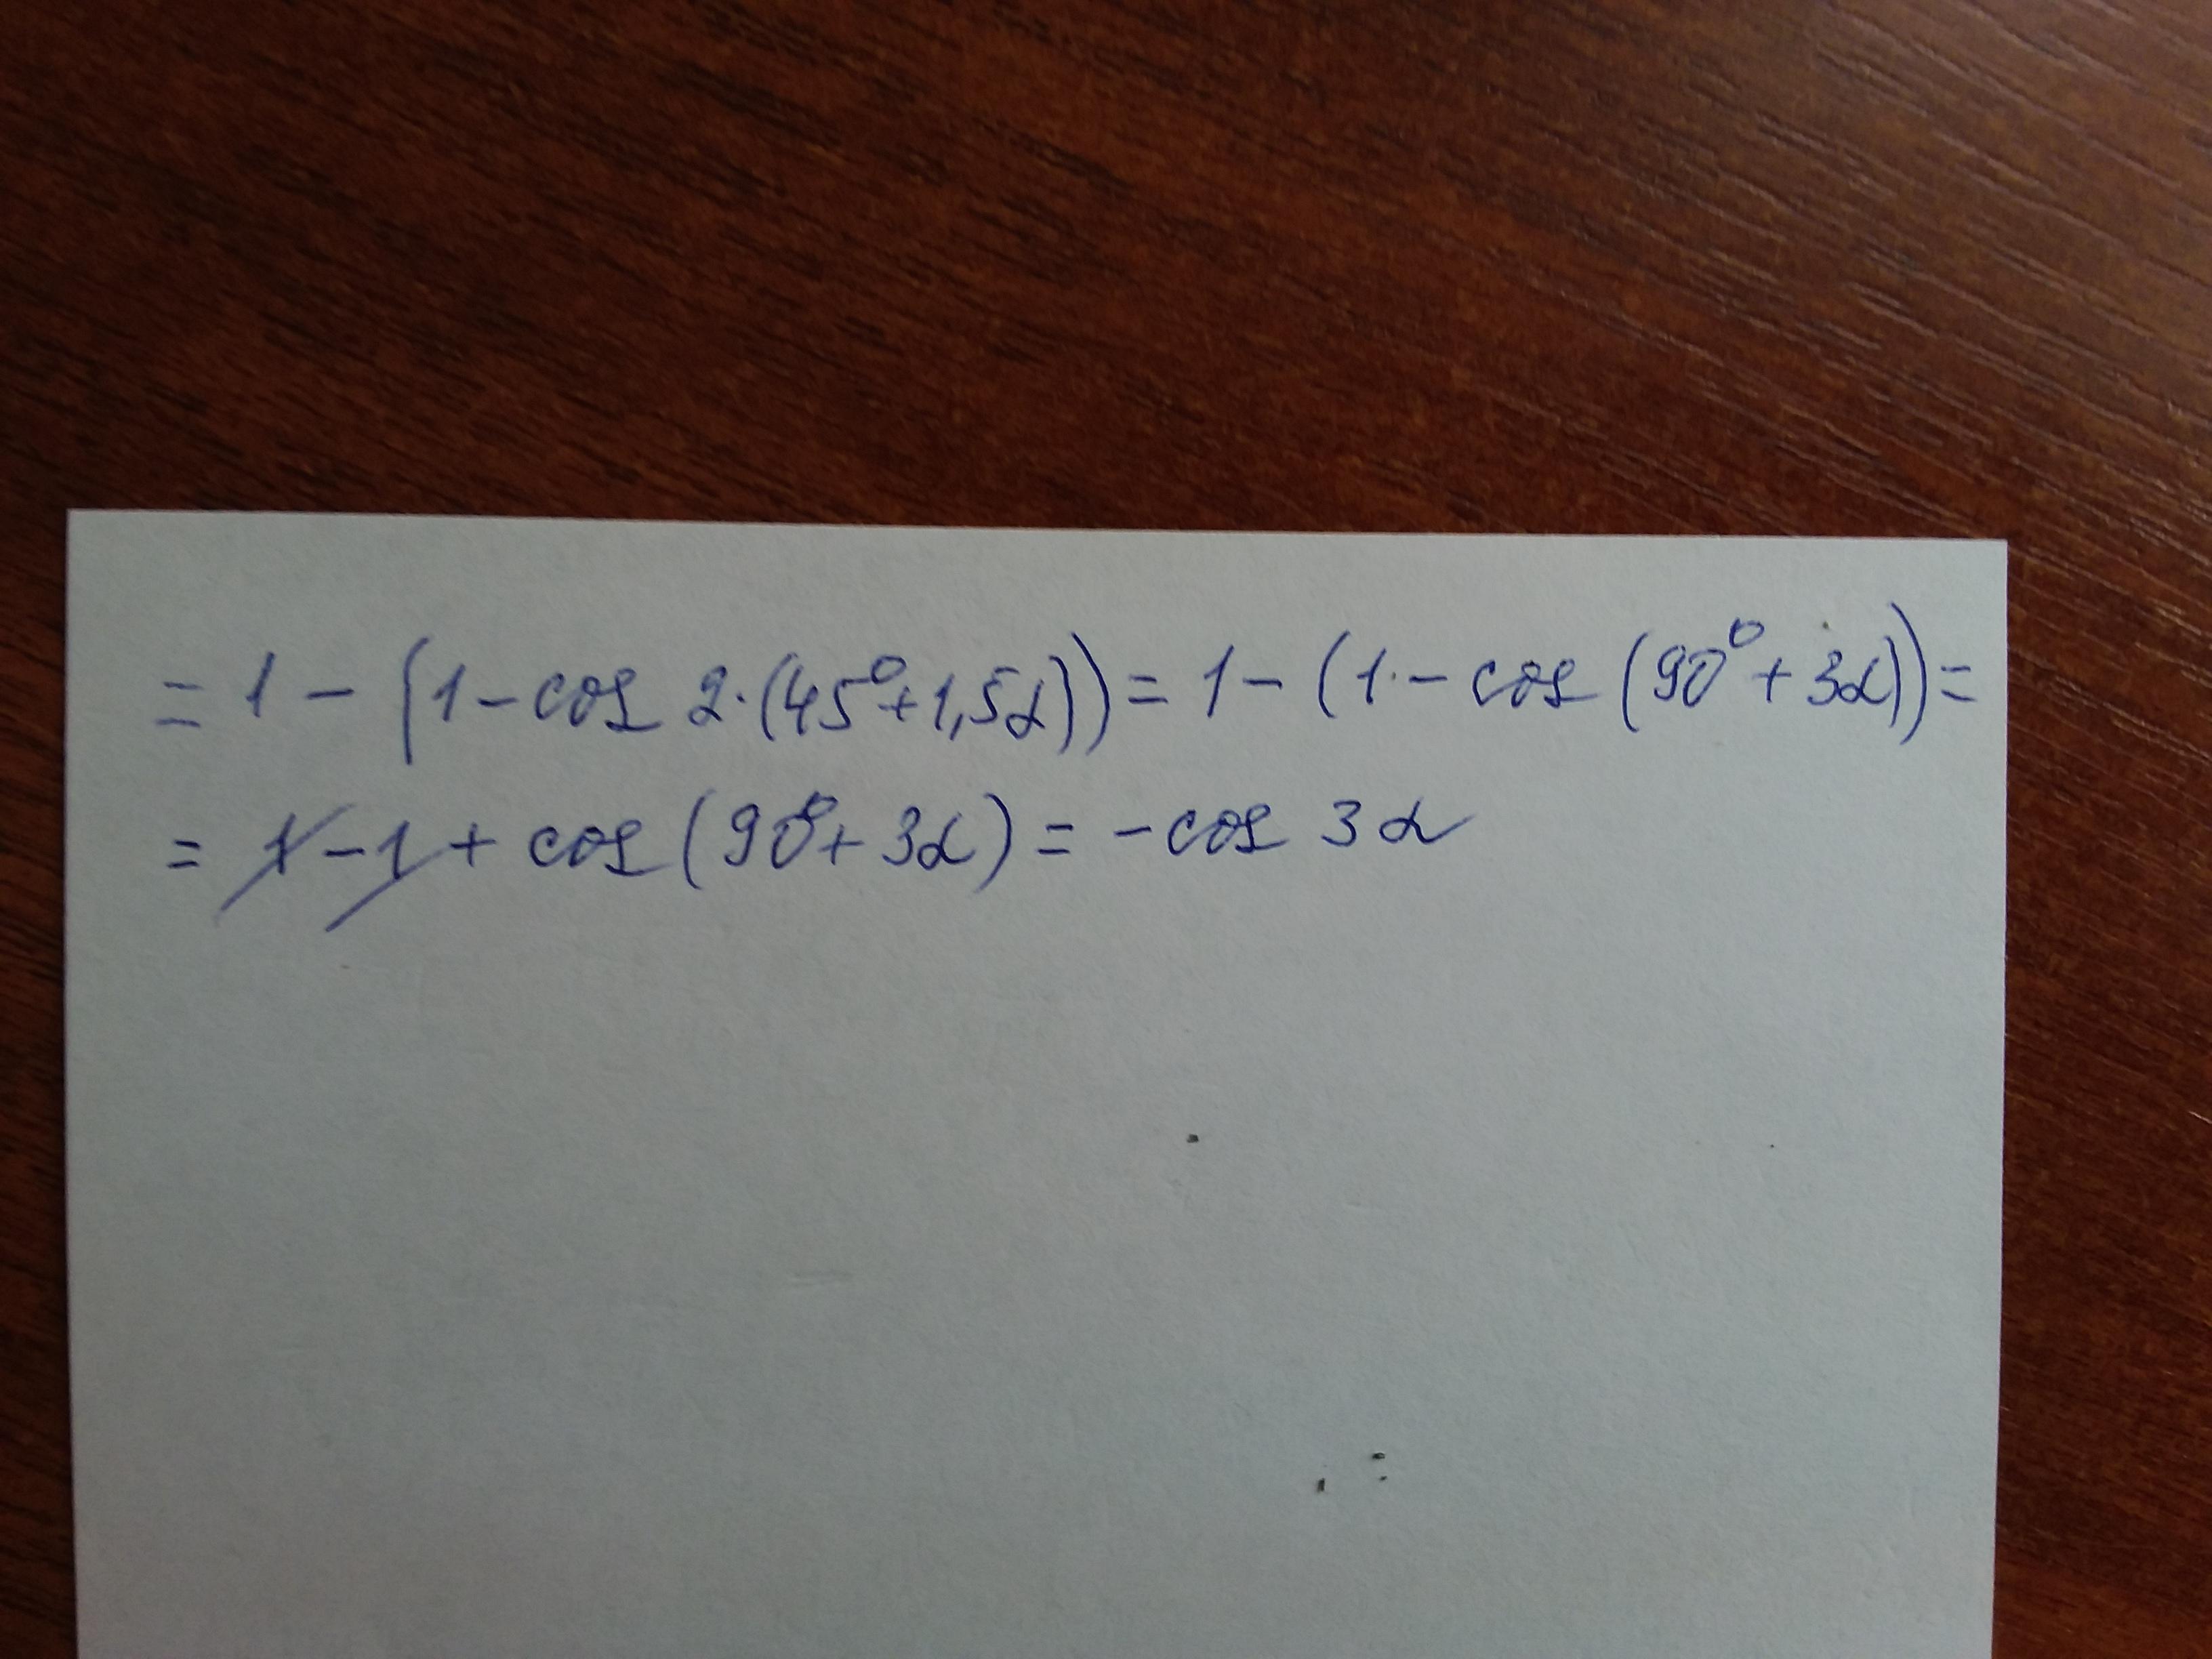 = 1 - (1 - cos 2·(45° + 1,5α)) = 1 - (1 - cos (90° + 3α)) =
= 1 - 1 + cos (90° + 3α) = - cos 3α